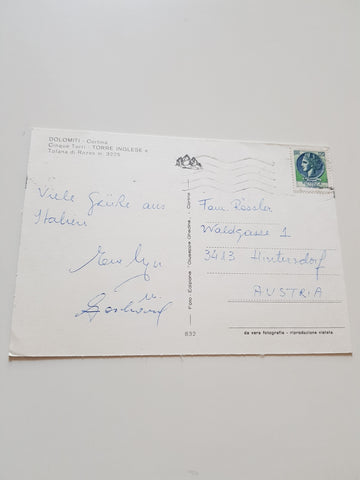 DOLOMITI - Cortina
Cinque Torri - TORRE INGLESE e
Tofana di Rozes m. 3225
Viele Grüße aus
Italien
u.
Gerhard
Foto Edizione Giuseppe Ghedina - Cortina
832
Fam. Rössler
Waldgasse 1
3483 Hintersdorf
AUSTRIA
da vera fotografia - riproduzione vietata